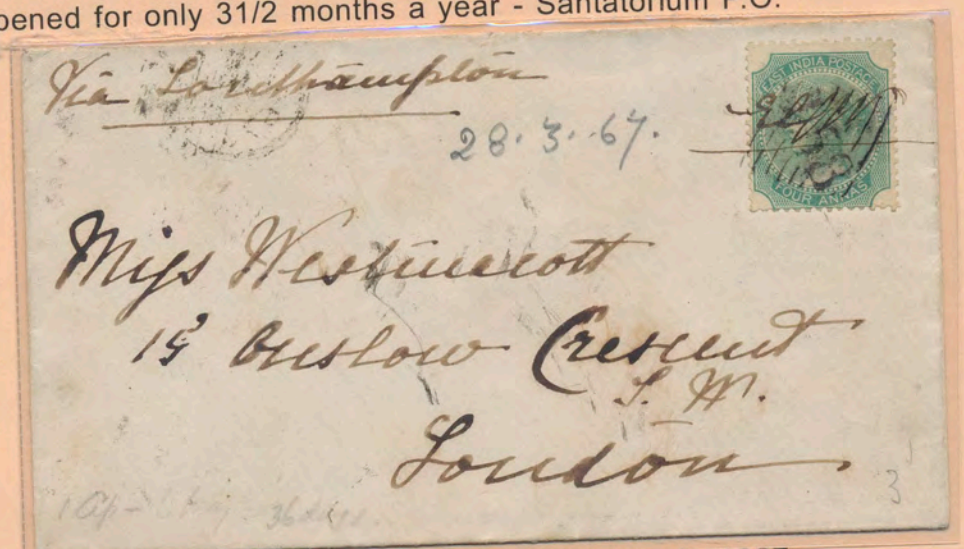 pened for only 31/2 months a year - Santatorium P.O.
Via Southampton
28.3.67.
EAST INDIA POSTAGE
FOUR ANNAS
Miss Westmacott
Onslow Crescent
S. W.
London
36 days.
3